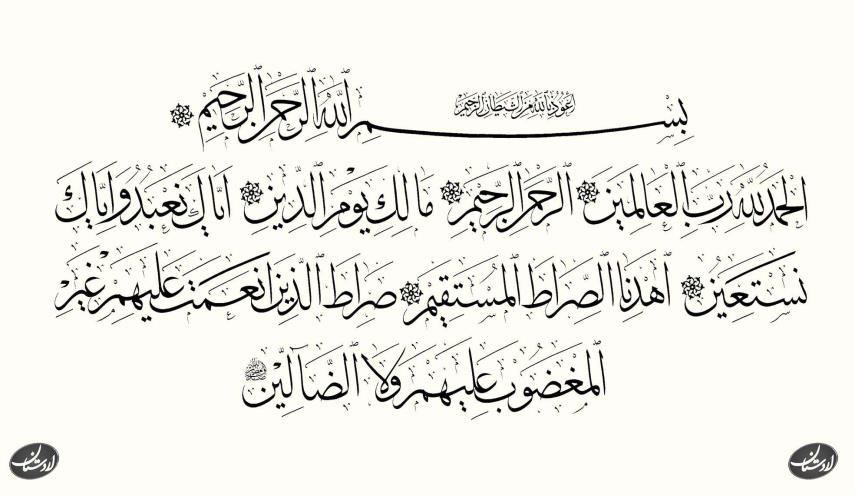 بِسْمِ اللهِ الرَّحْمنِ الرَّحِيمِ
اَعُوذُ بِاللهِ مِنَ الشَّيْطَانِ الرَّجِيمِ
اَلْحَمْدُ لِلهِ رَبِّ الْعَالَمِينَ الرَّحْمنِ الرَّحِيمِ مَالِكِ يَوْمِ الدِّينِ اِيَّاكَ نَعْبُدُ وَاِيَّاكَ
نَسْتَعِينُ اِهْدِنَا الصِّرَاطَ الْمُسْتَقِيمَ صِرَاطَ الَّذِينَ اَنْعَمْتَ عَلَيْهِمْ غَيْرِ
الْمَغْضُوبِ عَلَيْهِمْ وَلَا الضَّالِّينَ